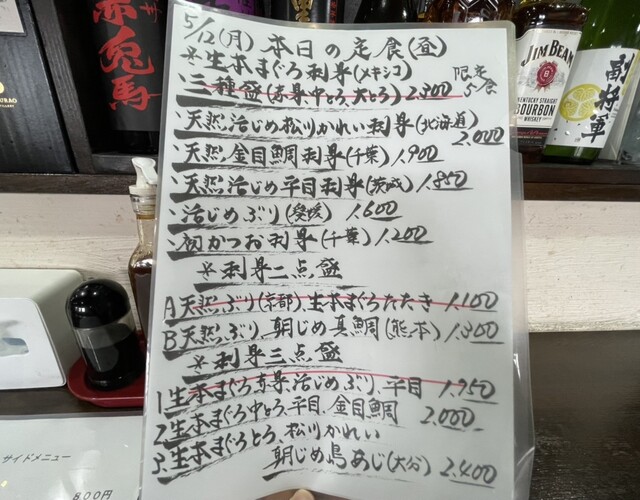 5/12(月) 本日の定食(昼)
※生本まぐろ刺身(メキシコ)
・三種盛(赤身中とろ、大とろ) 2.800 限定5食
・天然活じめ松川かれい刺身(北海道) 2.000
・天然金目鯛刺身(千葉) 1.900
・天然活じめ平目刺身(茨城) 1.850
・活じめぶり(愛媛) 1.600
・初かつお刺身(千葉) 1.200
※刺身二点盛
A天然ぶり(京都)、生本まぐろたたき 1.100
B天然ぶり、朝じめ真鯛(熊本) 1.300
※刺身三点盛
1生本まぐろ赤身、活じめぶり、平目 1.750
2生本まぐろ中とろ、平目、金目鯛 2.000
3.生本まぐろとろ、松川かれい
朝じめ島あじ(大分) 2.400
赤兎馬
JIM BEAM
KENTUCKY STRAIGHT
BOURBON
WHISKEY
副将軍
サイドメニュー
800円